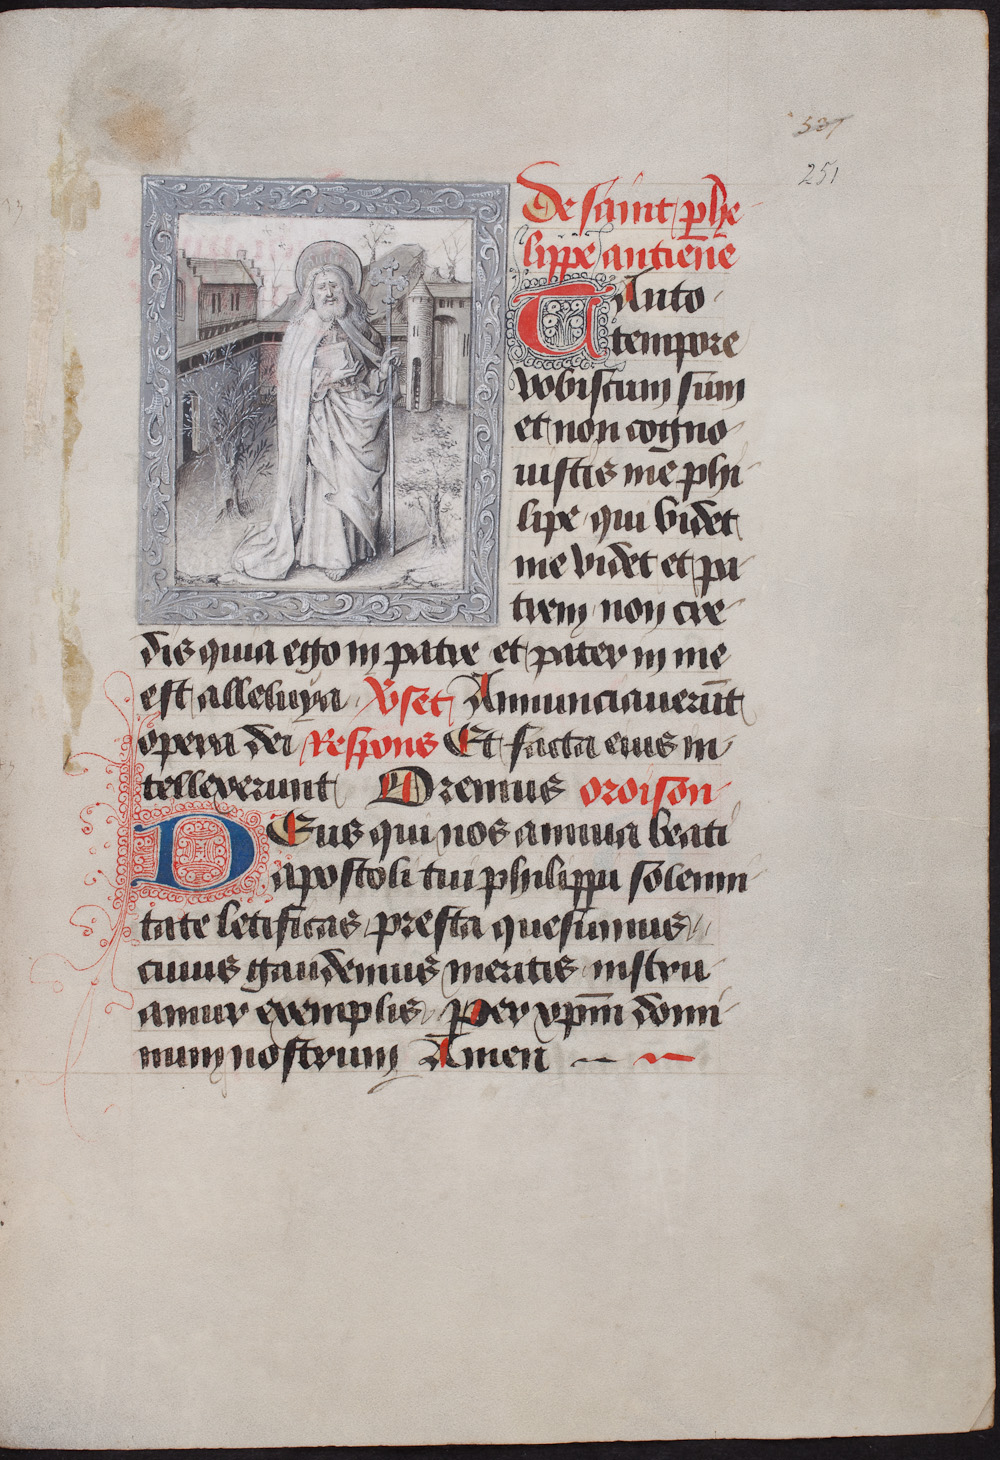 251
De saint phe
lippe antiēne
TAnto
tempore
vobiscum sum
et non cogno
uistis me phi
lipe qui videt
me videt et pa
trem non cre
dis quia ego in patre et pater in me
est alleluya Vset Annunciauerūt
opera dei Respons Et facta eius in
tellexerunt Oremus oroison
DEus qui nos annua beati
apostoli tui philippi solenni
tate letificas presta quesumus
cuius gaudemus meritis instru
amur exemplis Per xp̄m domi
num nostrum Amen